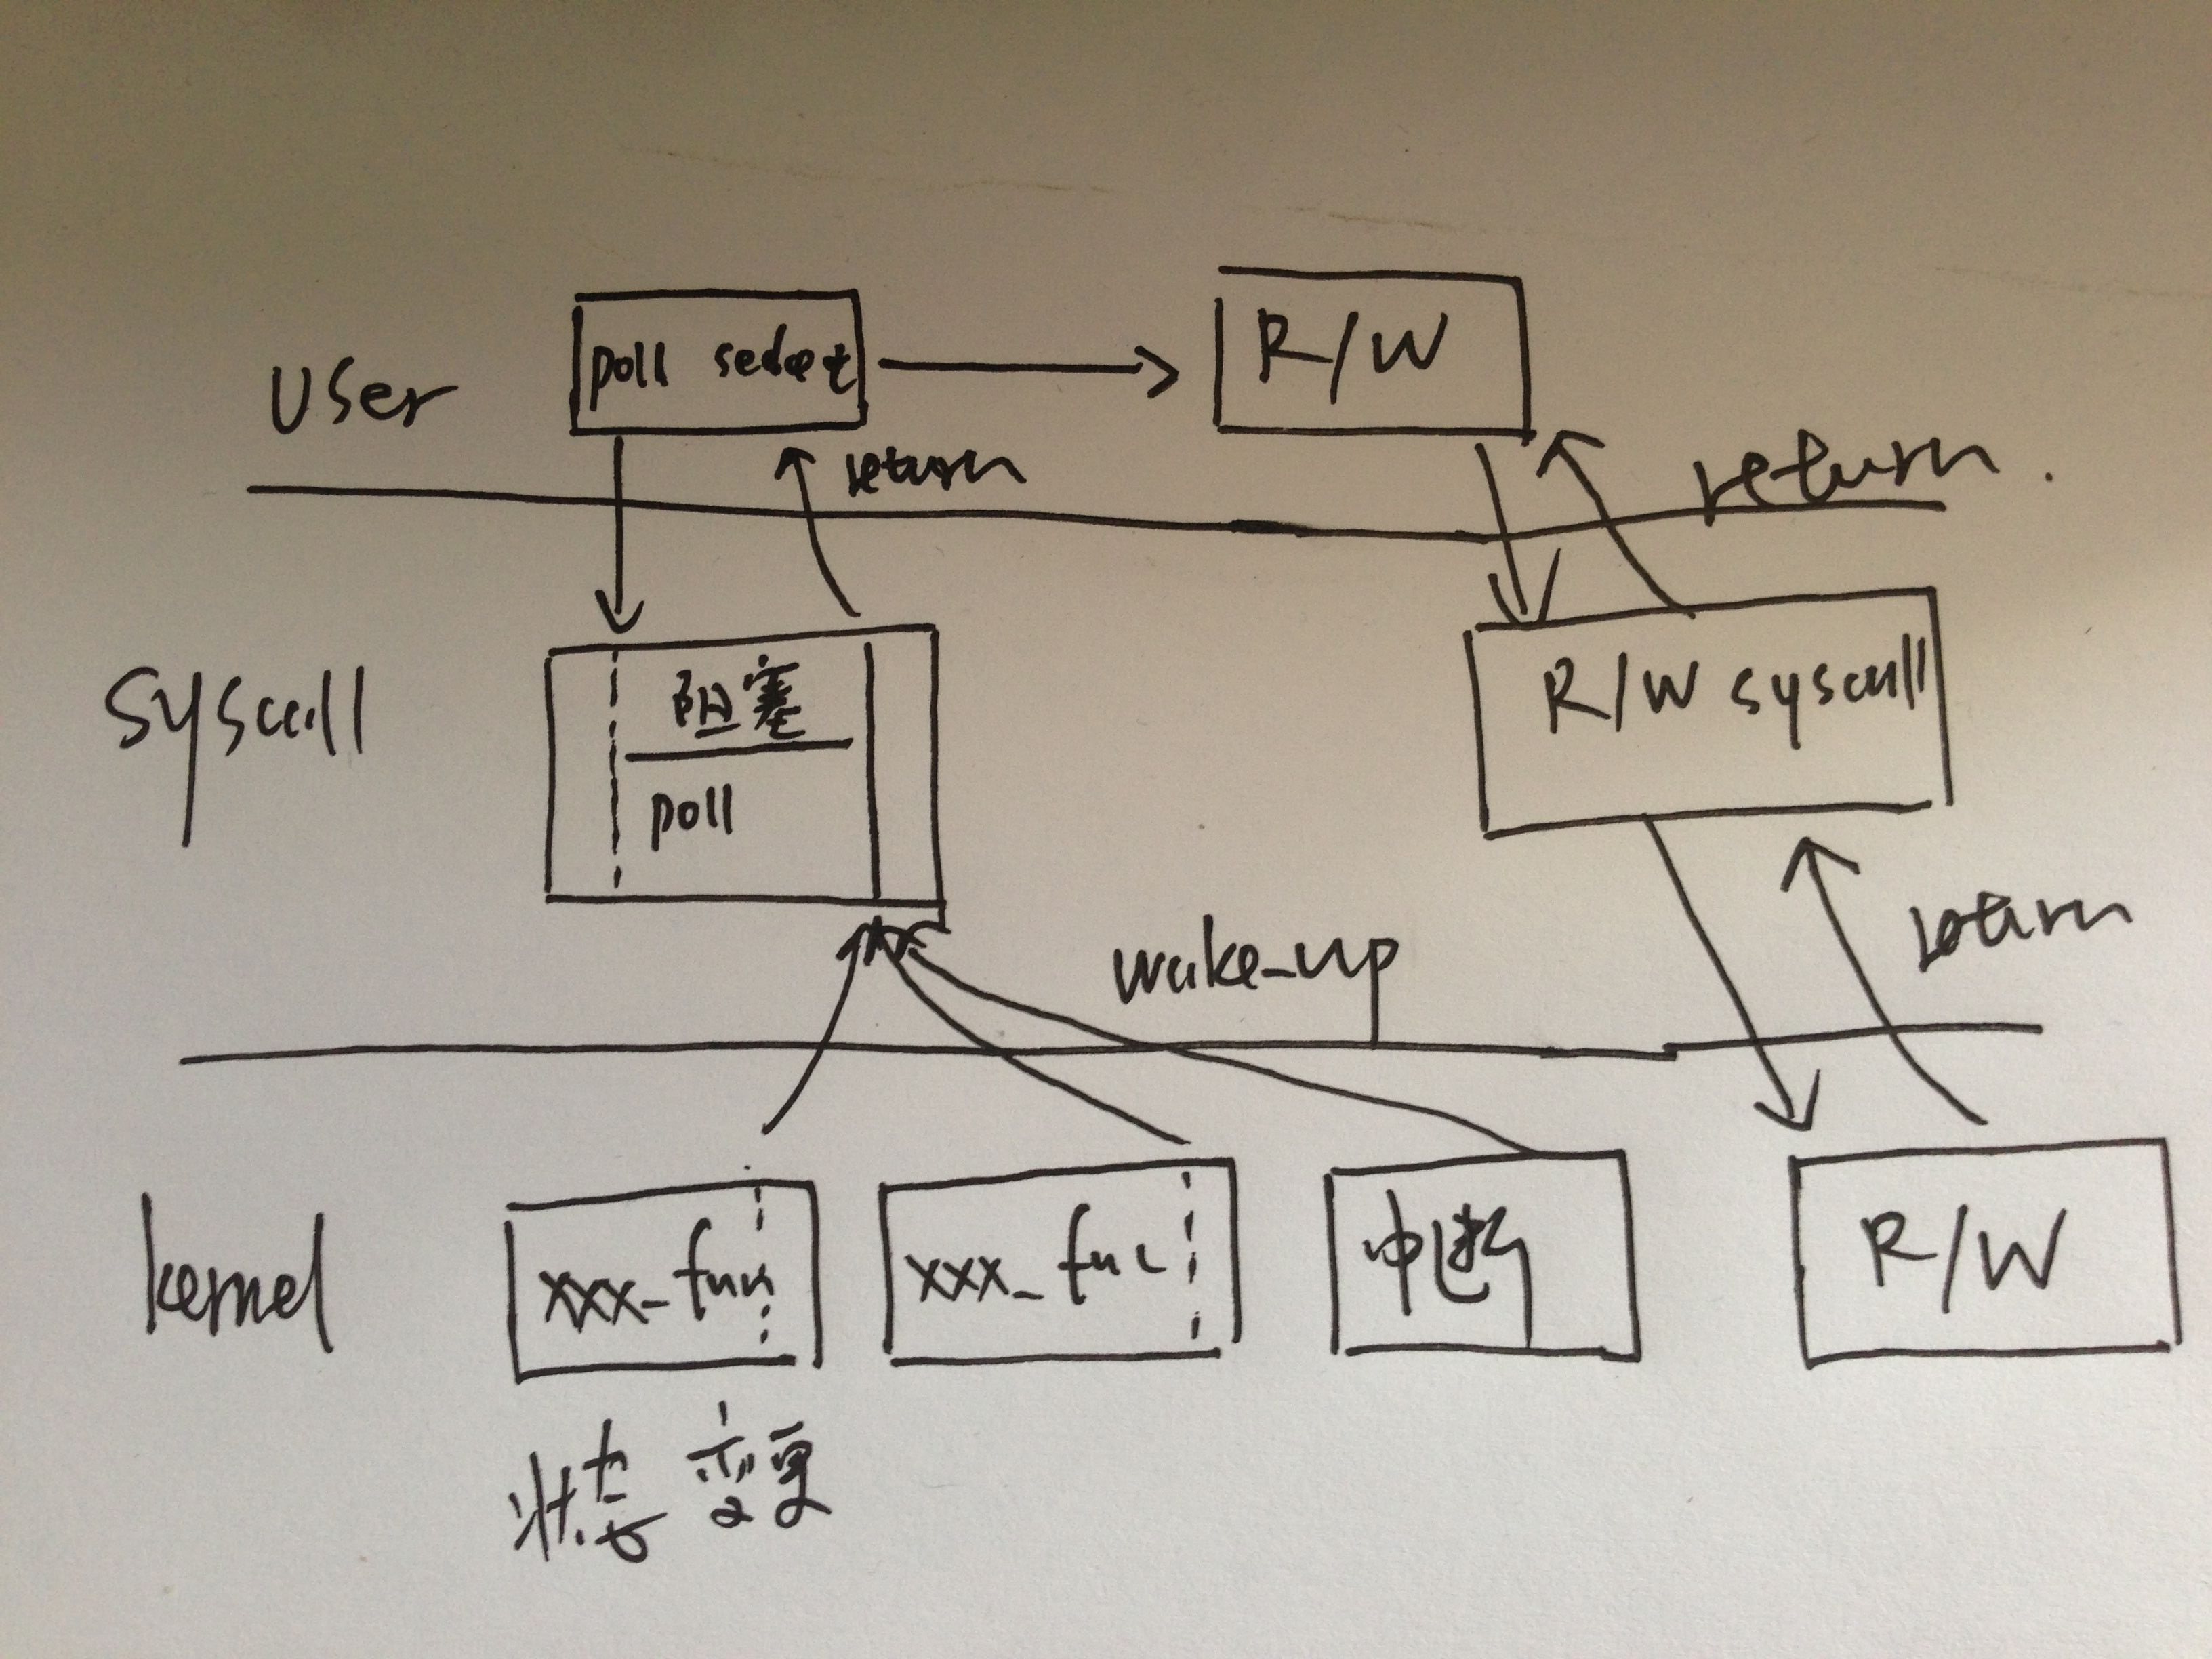 User
poll select
R/W
return
return.
Syscall
阻塞
poll
R/W syscall
wake-up
return
kernel
xxx_fun
xxx_fnc
中断
R/W
状态变更